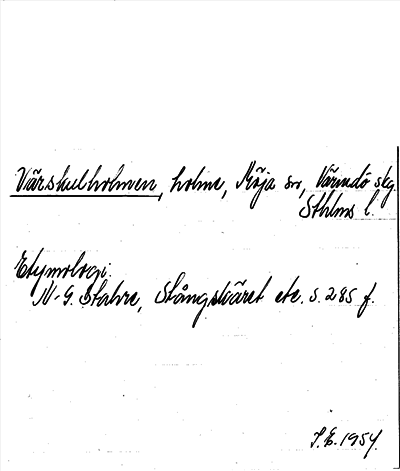 Värskulholmen, holme, Möja sn, Värmdö skg.
Sthlms l.
Etymologi:
N.-G. Stahre, Stångskäret etc. s. 285 f.
S.E. 1954.